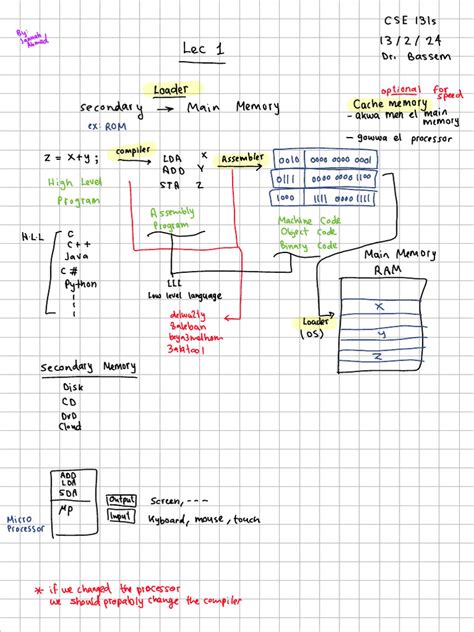 By
Jannah
Ahmed
CSE 131s
13/2/24
Dr. Bassem
Lec 1
Loader
secondary → Main Memory
ex: ROM
optional for
speed
Cache memory
- akwa men el main
memory
- gowwa el processor
z = x+y ;
compiler
LDA X
ADD Y
STA Z
Assembler
0010 0000 0000 0001
0111 0000 0000 0000
1000 1111 1111 0000
High Level
Program
Assembly
Program
Machine Code
Object Code
Binary Code
H.L.L
C
C++
Java
C#
Python
LLL
Low level language
delwa2ty
8aleban
3aktool
Main Memory
RAM
X
Y
Z
Loader
(OS)
Secondary Memory
Disk
CD
DVD
Cloud
ADD
LDA
SDA
MP
Micro
Processor
Output Screen, ---
Input Kyboard, mouse, touch
* if we changed the processor
we should propably change the compiler